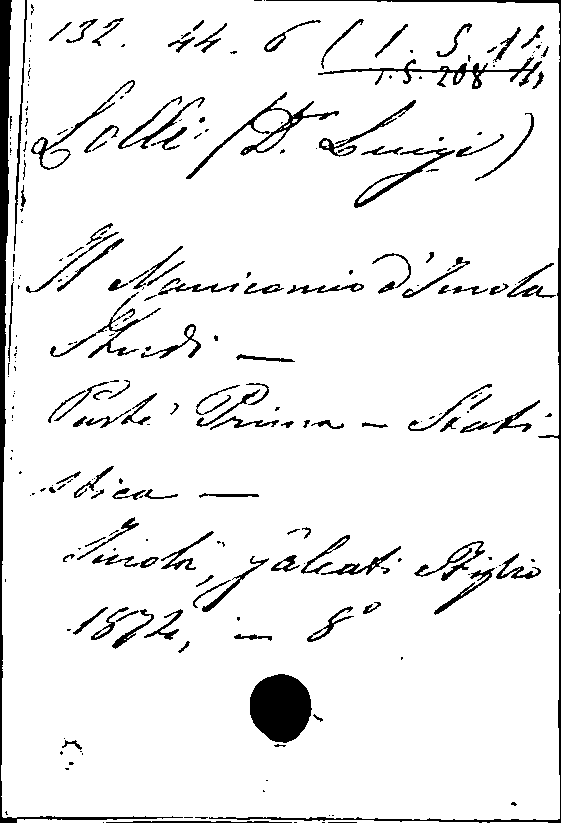 132. 44. 6 (1. S. 14,
T. S. 208 14,
Lolli (Dr. Luigi)
Il Manicomio d'Imola
Studi —
Parte Prima — Stati-
stica —
Imola, Galeati e figlio
1874, in 8°